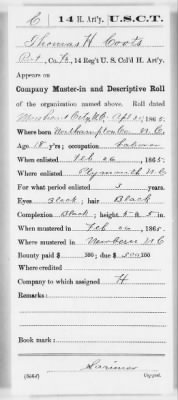 C | 14 H. Art'y. | U.S.C.T.
Thomas H Coots
Pvt, Co. H, 14 Reg't U. S. Col'd H. Art'y.
Appears on
Company Muster-in and Descriptive Roll
of the organization named above. Roll dated
Morehead City, N.C. Apl 25, 1865.
Where born Northampton Co N.C.
Age 18 y'rs; occupation Laborer
When enlisted Feb 26, 1865.
Where enlisted Plymouth N.C.
For what period enlisted 3 years.
Eyes Black; hair Black
Complexion Black; height 5 ft. 5 in.
When mustered in Feb 26, 1865.
Where mustered in Newberne N.C
Bounty paid $ 100; due $ 100
Where credited
Company to which assigned H
Remarks:
Book mark:
Larimer
Copyist.